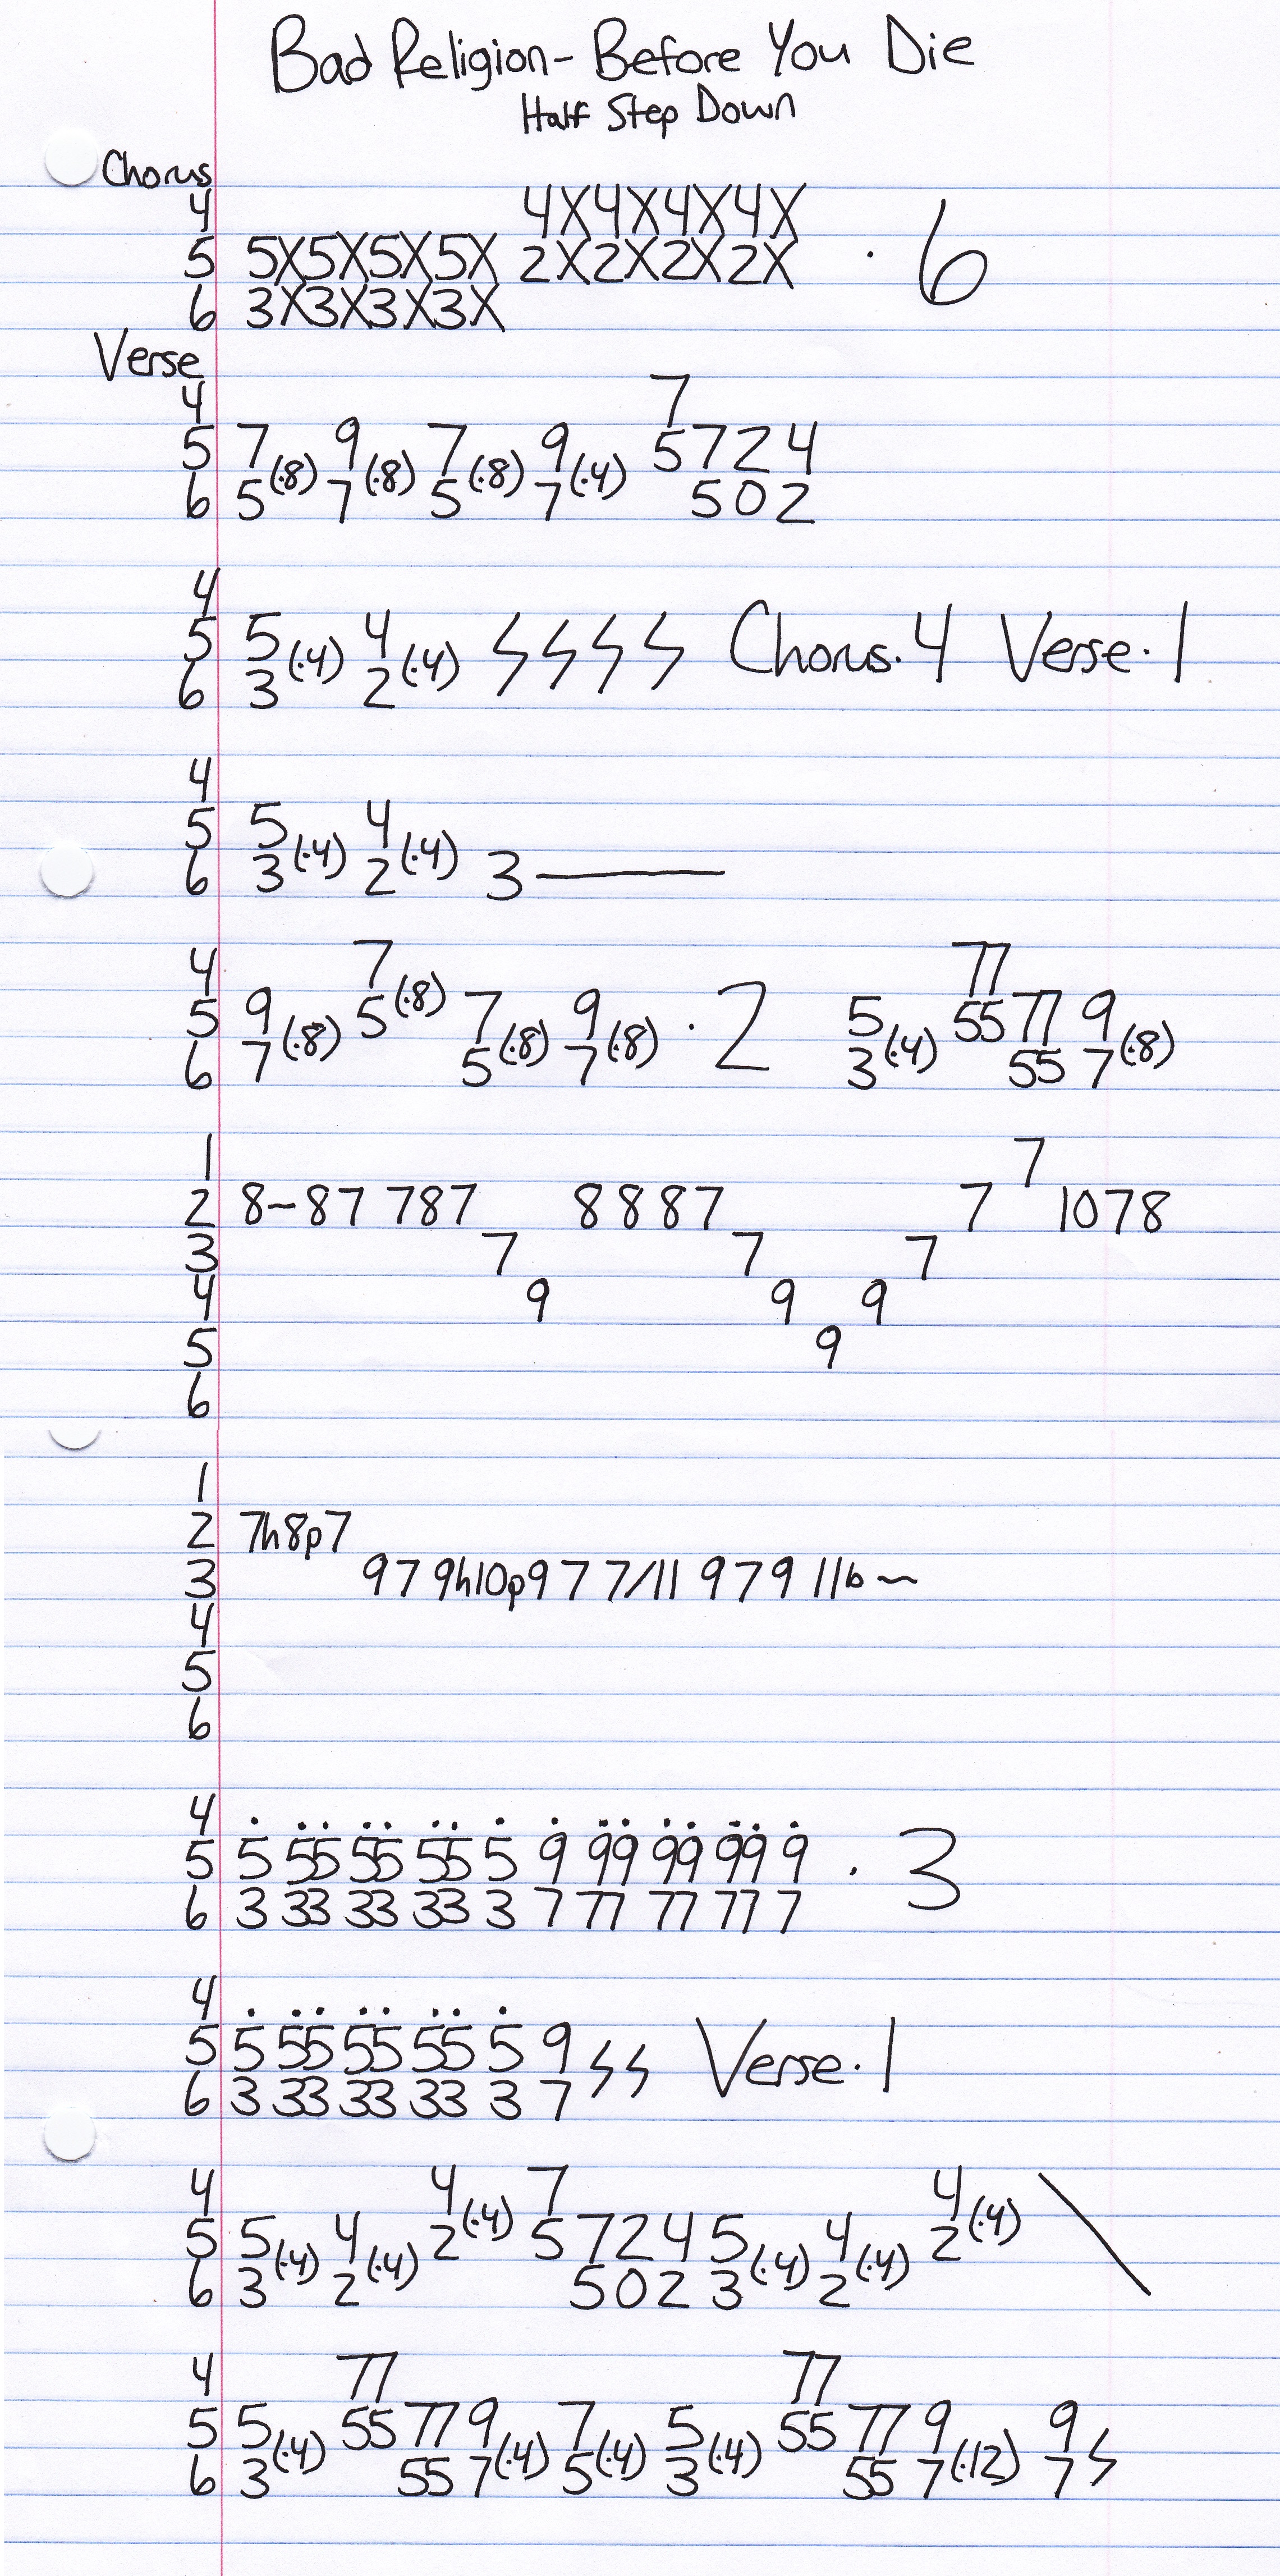 Bad Religion - Before You Die
Half Step Down
Chorus
4 4X4X4X4X
5 5X5X5X5X 2X2X2X2X · 6
6 3X3X3X3X
Verse
4 7
5 7 (·8) 9 (·8) 7 (·8) 9 (·4) 5 7 2 4
6 5 7 5 7 5 0 2
4
5 5 (·4) 4 (·4) Chorus·4 Verse·1
6 3 2
4
5 5 (·4) 4 (·4)
6 3 2 3
4 7 (·8) 77
5 9 (·8) 5 7 (·8) 9 (·8) · 2 5 (·4) 55 77 9 (·8)
6 7 5 7 3 55 7
1 7
2 8~87 787 8887 7 1078
3 7 7 7
4 9 9 9
5 9
6
1
2 7h8p7
3 979h10p977/11 979 11b~
4
5
6
4
5 5 55 55 55 5 9 99 99 99 9 · 3
6 3 33 33 33 3 7 77 77 77 7
4
5 5 55 55 55 5 9 Verse·1
6 3 33 33 33 3 7
4 4 (·4) 7 4 (·4)
5 5 (·4) 4 (·4) 2 5 7 2 4 5 (·4) 4 (·4) 2 \
6 3 2 5 0 2 3 2
4 77 77
5 5 (·4) 55 77 9 (·4) 7 (·4) 5 (·4) 55 77 9 (·12) 9
6 3 55 7 5 3 55 7 7